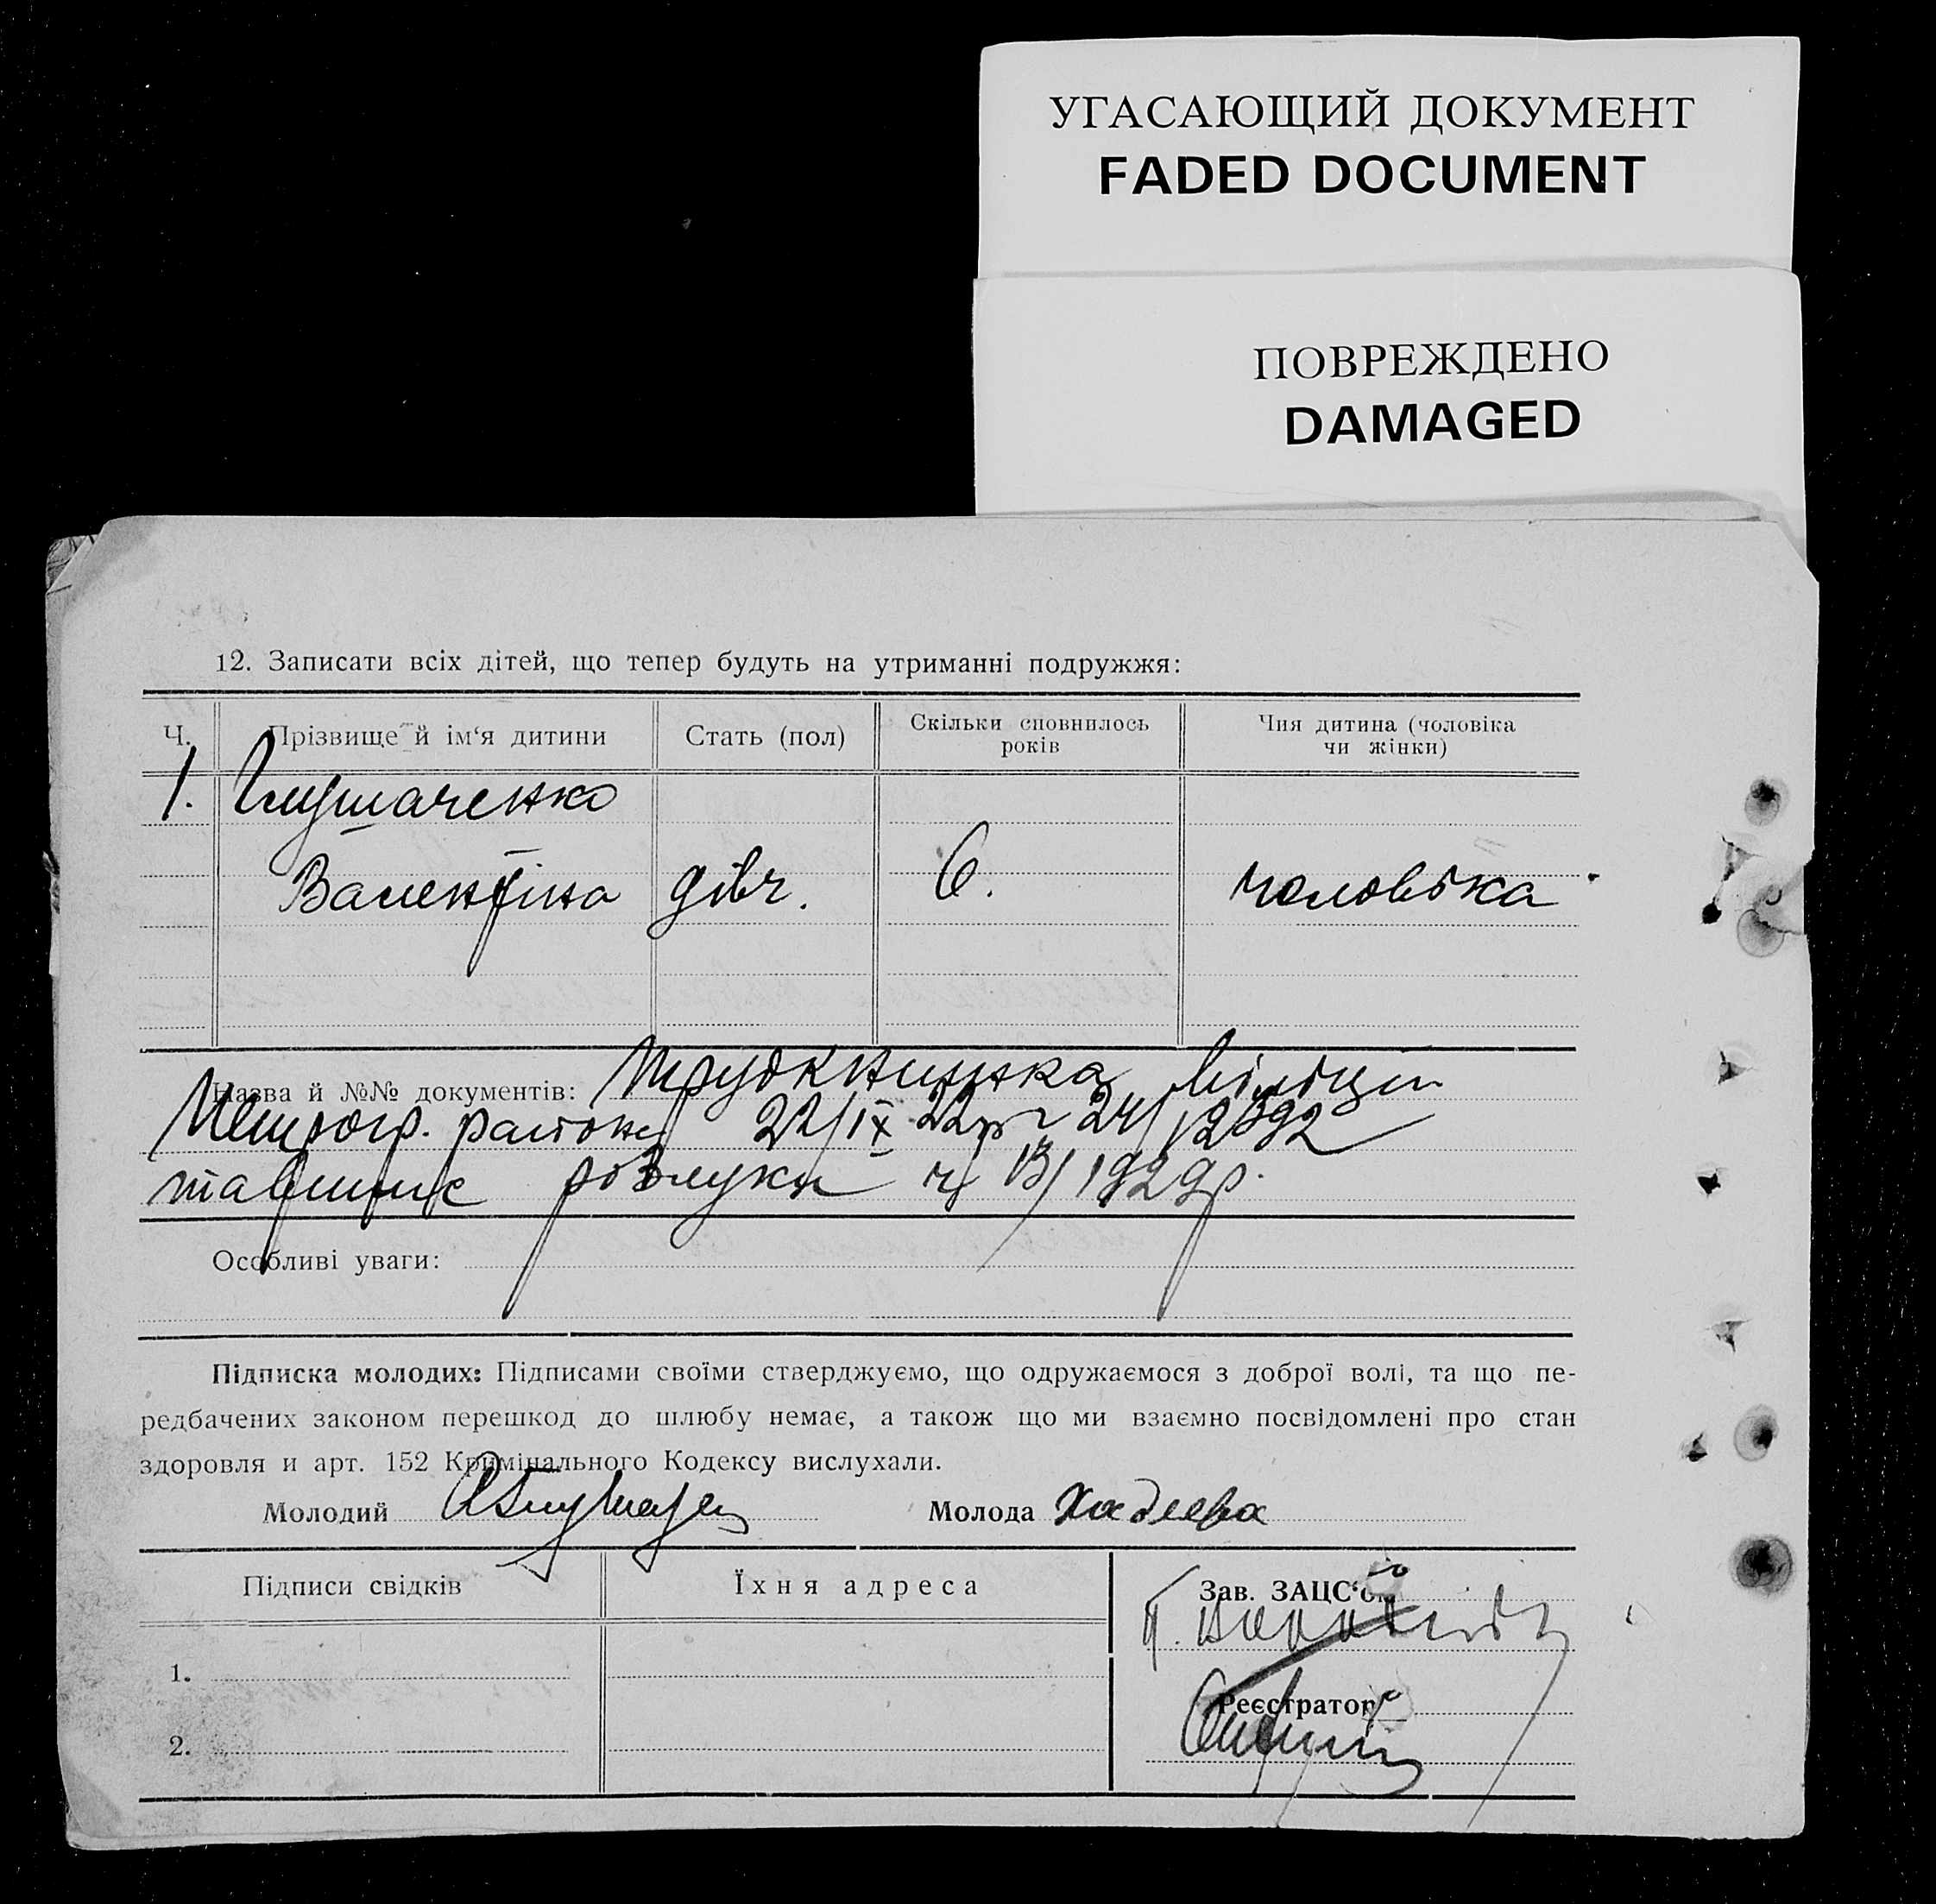 УГАСАЮЩИЙ ДОКУМЕНТ
FADED DOCUMENT
ПОВРЕЖДЕНО
DAMAGED
12. Записати всіх дітей, що тепер будуть на утриманні подружжя:
Ч. Прізвище й ім‘я дитини Стать (пол) Скільки сповнилось років Чия дитина (чоловіка чи жінки)
1. Глушаченко
Валентіна дівч. 6. чоловіка
Назва й №№ документів: Трудкнижка Міліції
Петрогр. району 22/IX 22р
розлуки ч 13/1929р.
Особливі уваги:
Підписка молодих: Підписами своїми стверджуємо, що одружаємося з доброї волі, та що пе-
редбачених законом перешкод до шлюбу немає, а також що ми взаємно посвідомлені про стан
здоровля и арт. 152 Кримінального Кодексу вислухали.
Молодий Молода Хадеева
Підписи свідків Їхня адреса Зав. ЗАЦС‘ом
1.
Реєстратор
2.